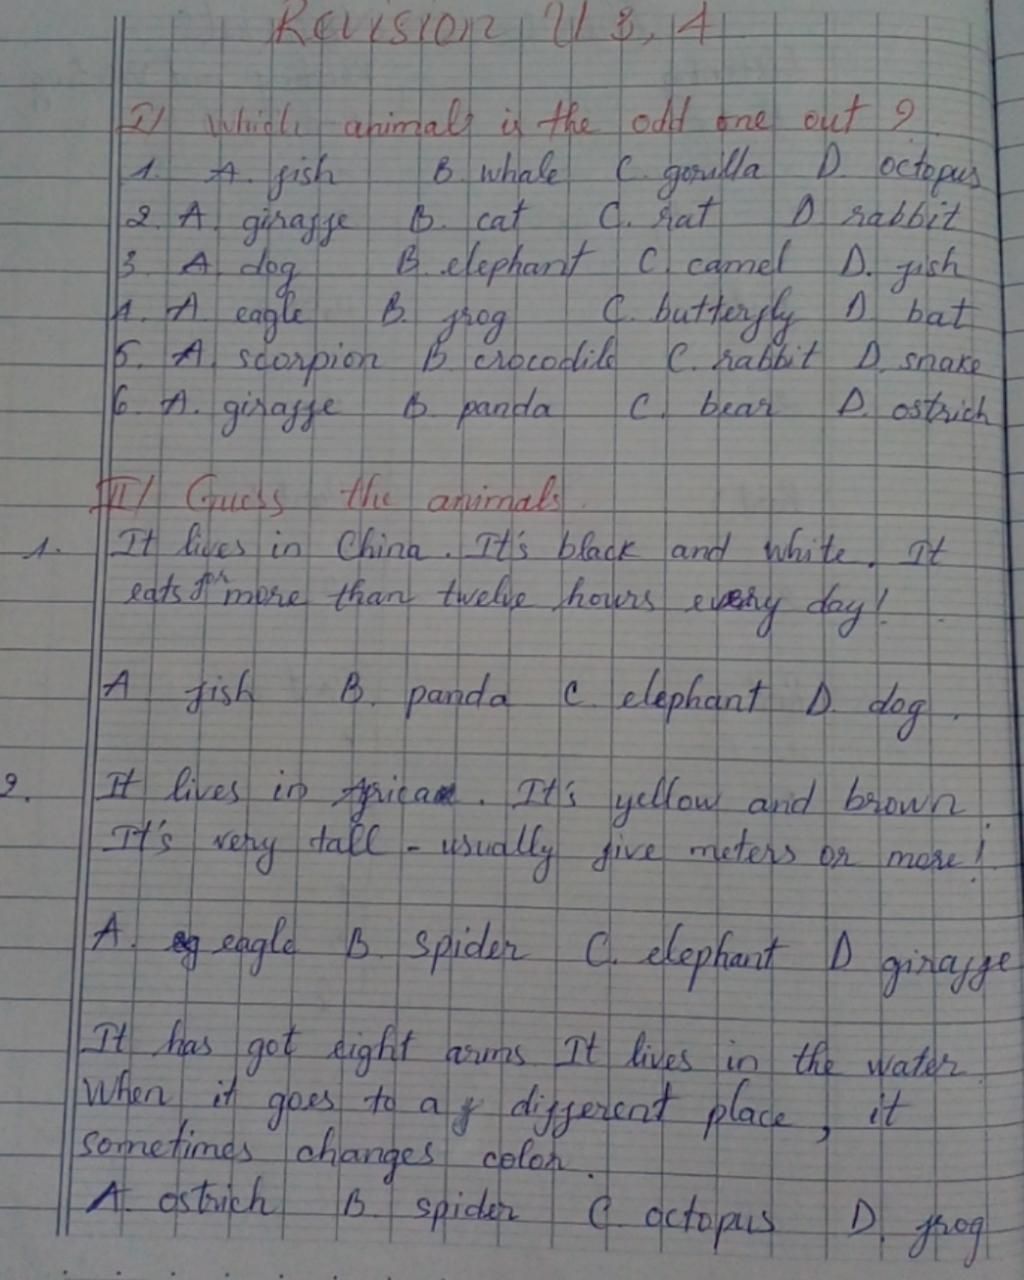 Revision U 3, 4
I/ Which animal is the odd one out ?
1. A. fish B. whale C. gorilla D. octopus
2. A. giraffe B. cat C. rat D rabbit
3. A. dog B. elephant C. camel D. fish
4. A. eagle B. frog C. butterfly D bat
5. A. scorpion B crocodile C. rabbit D. snake
6. A. giraffe B. panda C. bear D. ostrich
II/ Guess the animals.
1. It lives in China. It's black and white. It
eats for more than twelve hours every day!
A fish B. panda C. elephant D. dog.
2. It lives in Africa. It's yellow and brown.
It's very tall - usually five meters or more!
A. eagle B. spider C. elephant D giraffe
It has got eight arms It lives in the water.
When it goes to a different place, it
sometimes changes color.
A. ostrich B. spider C. octopus D. frog